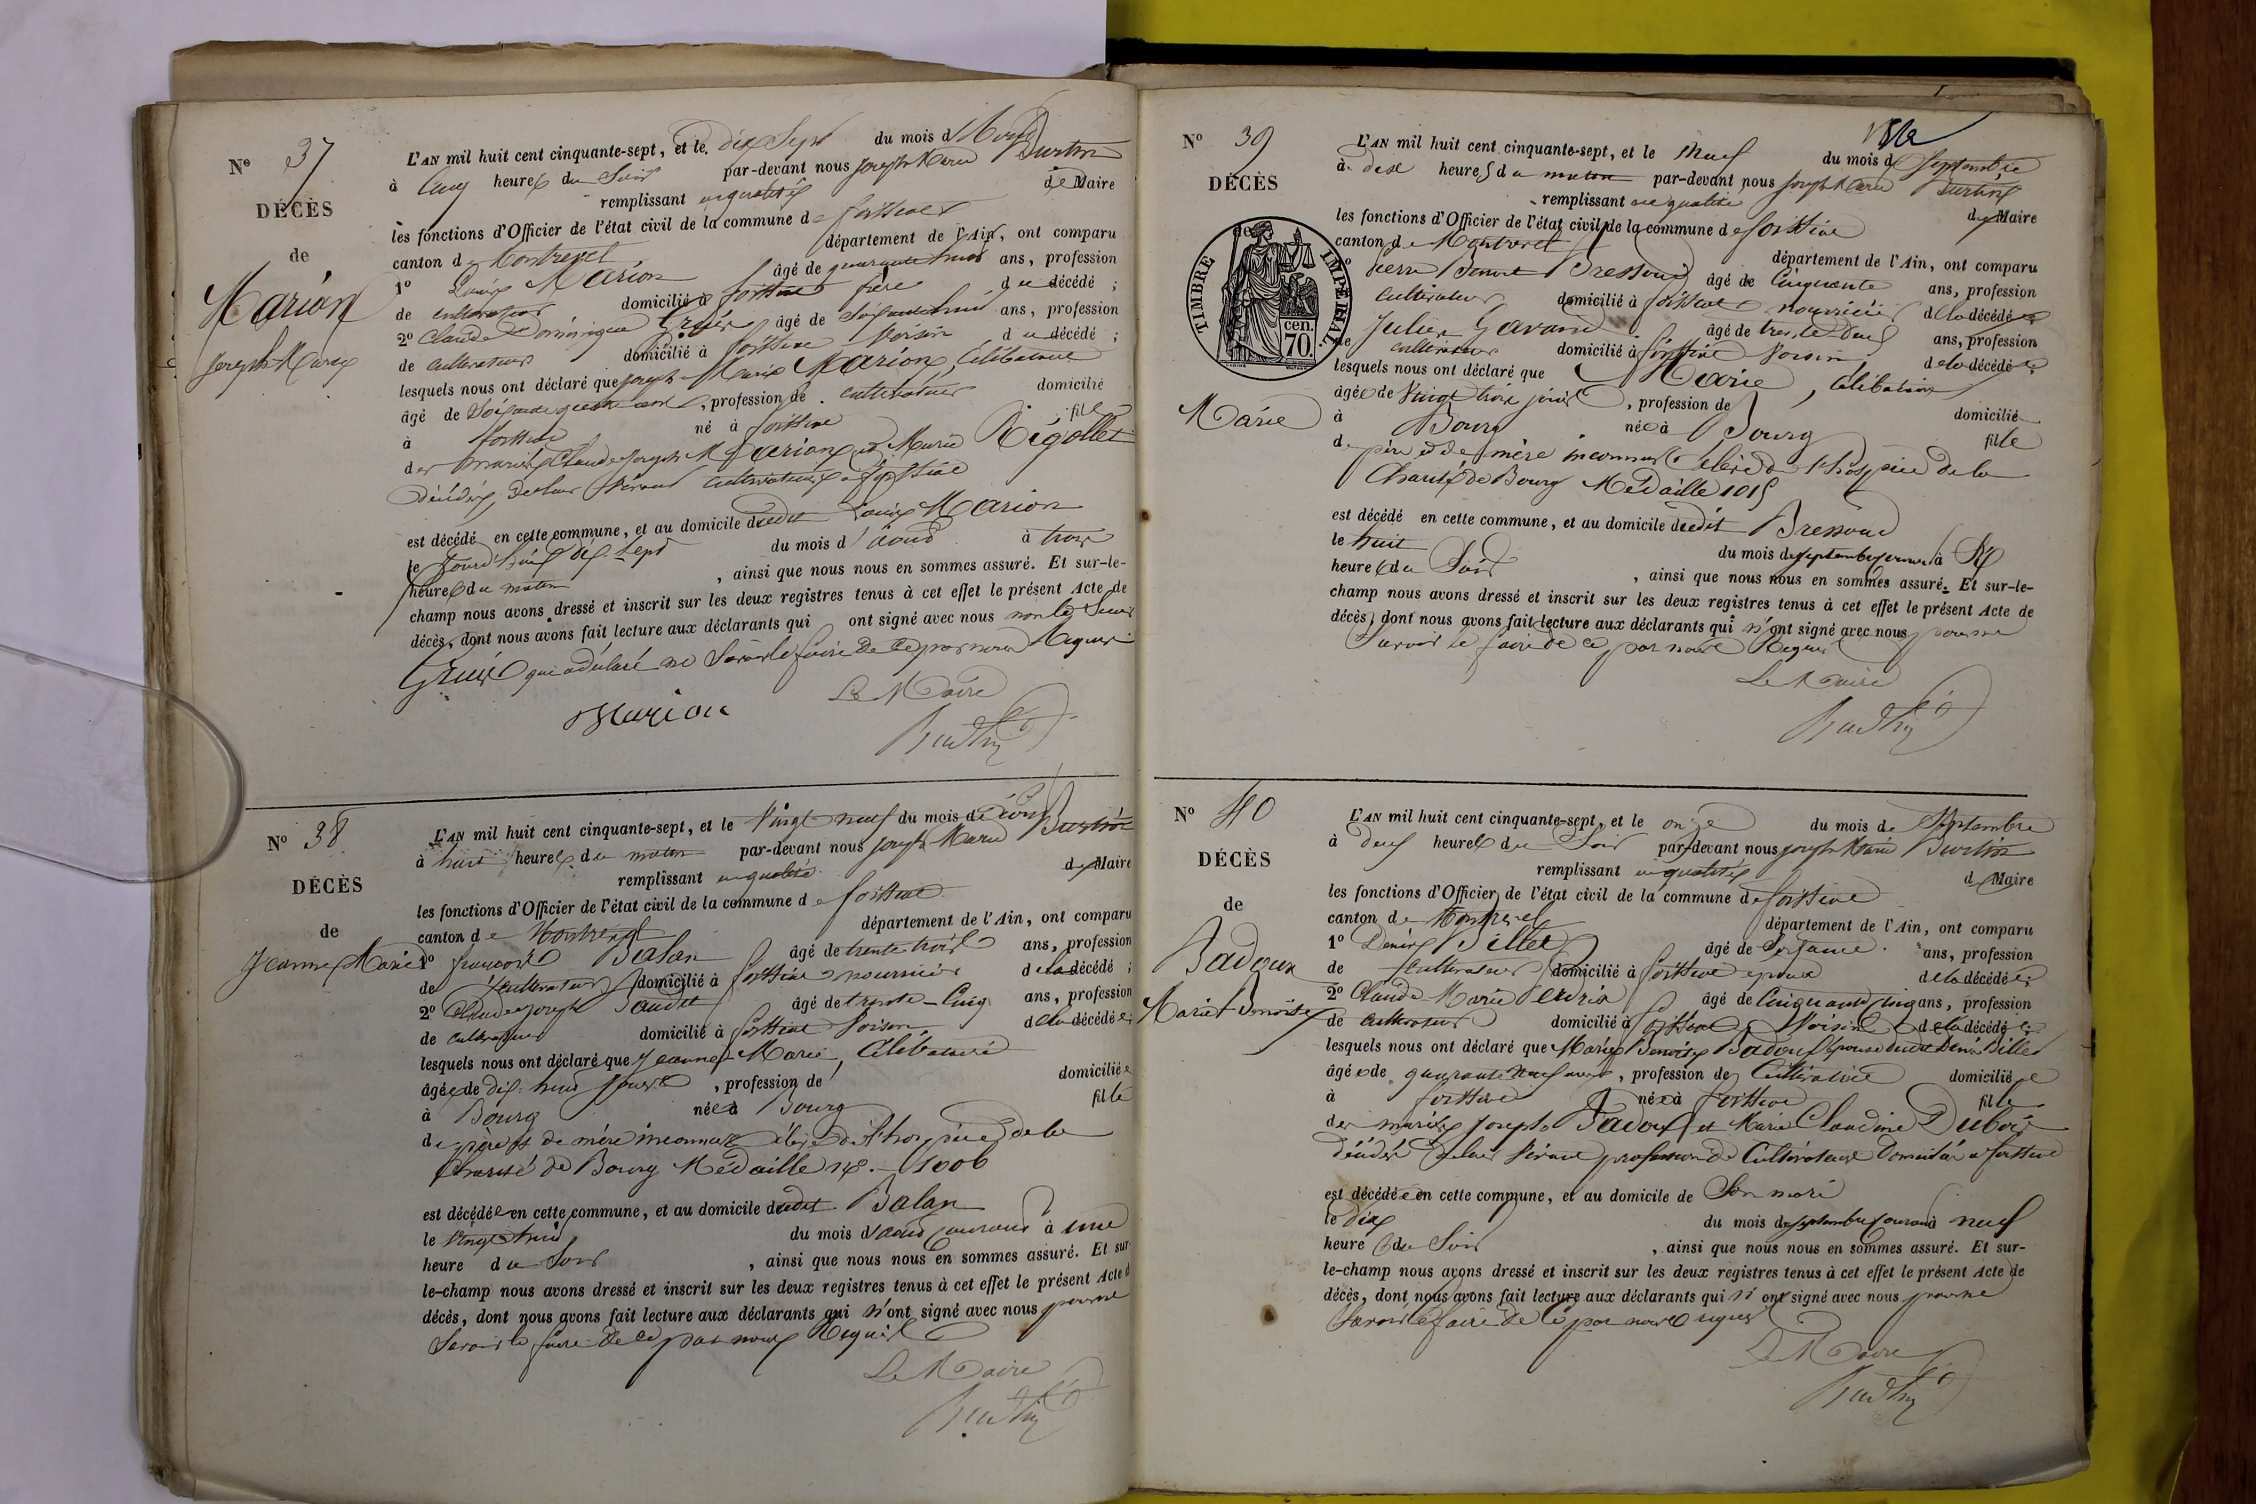 N° 37
DÉCÈS
de
Marion
Joseph Marie
L'AN mil huit cent cinquante-sept, et le dix Sept du mois d'
à Cinq heures du Soir par-devant nous Joseph Marie Burtin
remplissant en qualité de Maire
les fonctions d'Officier de l'état civil de la commune de foissiat
canton de Montrevel département de l'Ain, ont comparu
1° Louis Marion âgé de quarante ans, profession
de cultivateur domicilié à foissiat frère du décédé ;
2° Claude Dominique âgé de ans, profession
de cultivateur domicilié à foissiat Voisin du décédé ;
lesquels nous ont déclaré que Joseph Marie Marion, Célibataire
âgé de ans, profession de cultivateur domicilié
à foissiat né à foissiat fils
des mariés Claude Joseph Marion et Marie Rigollet
décédés, de leur vivant cultivateurs à foissiat
est décédé en cette commune, et au domicile dudit Louis Marion
le jourd'hui dix Sept du mois d'août à trois
heures du matin, ainsi que nous nous en sommes assuré. Et sur-le-
champ nous avons dressé et inscrit sur les deux registres tenus à cet effet le présent Acte de
décès, dont nous avons fait lecture aux déclarants qui ont signé avec nous non le Sieur
qui a déclaré ne Savoir le faire de ce par nous Requis
Marion
Le Maire
Burtin
N° 38
DÉCÈS
de
Jeanne Marie
L'AN mil huit cent cinquante-sept, et le Vingt neuf du mois d'août
à huit heures du matin par-devant nous Joseph Marie Burtin
remplissant en qualité de Maire
les fonctions d'Officier de l'état civil de la commune de foissiat
canton de Montrevel département de l'Ain, ont comparu
1° françois Balan âgé de trente trois ans, profession
de cultivateur domicilié à foissiat nourricier de la décédé ;
2° Claude Joseph âgé de trente-Cinq ans, profession
de cultivateur domicilié à foissiat Voisin de la décédée
lesquels nous ont déclaré que Jeanne Marie, Célibataire
âgée de dix huit jours, profession de domiciliée
à Bourg née à Bourg fille
de père et de mère inconnus élève de l'hospice de la
Charité de Bourg Médaille n° 1006
est décédée en cette commune, et au domicile dudit Balan
le Vingt huit du mois d'août courant à une
heure du Soir, ainsi que nous nous en sommes assuré. Et sur-
le-champ nous avons dressé et inscrit sur les deux registres tenus à cet effet le présent Acte d
décès, dont nous avons fait lecture aux déclarants qui n'ont signé avec nous pour ne
Savoir le faire de ce par nous Requis
Le Maire
Burtin
N° 39
DÉCÈS
de
TIMBRE IMPÉRIAL
70 cen.
Marie
L'AN mil huit cent cinquante-sept, et le Neuf du mois de Septembre
à dix heures du matin par-devant nous Joseph Marie Burtin
remplissant en qualité de Maire
les fonctions d'Officier de l'état civil de la commune de foissiat
canton de Montrevel département de l'Ain, ont comparu
Pierre Benoit Bressoud âgé de Cinquante ans, profession
cultivateur domicilié à foissiat nourricier de la décédée
Julien Gavand âgé de trente Deux ans, profession
de cultivateur domicilié à foissiat Voisin de la décédée
lesquels nous ont déclaré que Marie, Célibataire
âgée de Vingt trois jours, profession de domicilié
à Bourg née à Bourg fille
de père et de mère inconnus élève de l'hospice de la
Charité de Bourg Médaille 1015
est décédé en cette commune, et au domicile dudit Bressoud
le huit du mois de septembre courant à Six
heures du Soir, ainsi que nous nous en sommes assuré. Et sur-le-
champ nous avons dressé et inscrit sur les deux registres tenus à cet effet le présent Acte de
décès, dont nous avons fait lecture aux déclarants qui n'ont signé avec nous pour ne
Savoir le faire de ce par nous Requis
Le Maire
Burtin
N° 40
DÉCÈS
de
Badoux
Marie Benoite
L'AN mil huit cent cinquante-sept, et le onze du mois de Septembre
à deux heures du Soir par-devant nous Joseph Marie Burtin
remplissant en qualité de Maire
les fonctions d'Officier de l'état civil de la commune de foissiat
canton de Montrevel département de l'Ain, ont comparu
1° Denis Billet âgé de Soixante ans, profession
de cultivateur domicilié à foissiat époux de la décédée
2° Claude Marie âgé de Cinquante Cinq ans, profession
de cultivateur domicilié à foissiat Voisin de la décédée
lesquels nous ont déclaré que Marie Benoite Badoux épouse dudit Denis Billet
âgée de quarante neuf ans, profession de Cultivatrice domiciliée
à foissiat née à foissiat fille
des mariés Joseph Badoux et Marie Claudine Dubois
décédés de leur vivant profession de Cultivateurs Domiciliés à foissiat
est décédée en cette commune, et au domicile de Son mari
le dix du mois de septembre courant à neuf
heures du Soir, ainsi que nous nous en sommes assuré. Et sur-
le-champ nous avons dressé et inscrit sur les deux registres tenus à cet effet le présent Acte de
décès, dont nous avons fait lecture aux déclarants qui n'ont signé avec nous pour ne
Savoir le faire de ce par nous requis
Le Maire
Burtin